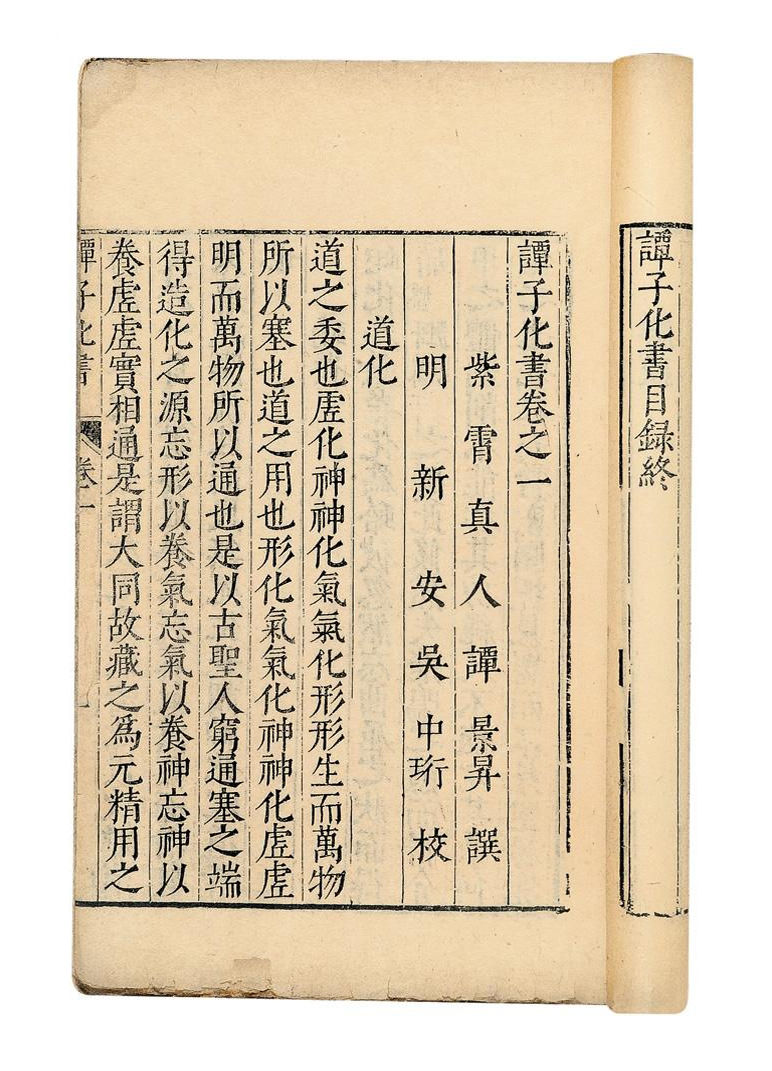 譚子化書目録終
譚子化書卷之一
紫霄真人譚景昇譔
明新安吳中珩校
道化
道之委也虛化神神化氣氣化形形生而萬物
所以塞也道之用也形化氣氣化神神化虛虛
明而萬物所以通也是以古聖人窮通塞之端
得造化之源忘形以養氣忘氣以養神忘神以
養虛虛實相通是謂大同故藏之為元精用之
譚子化書 卷一